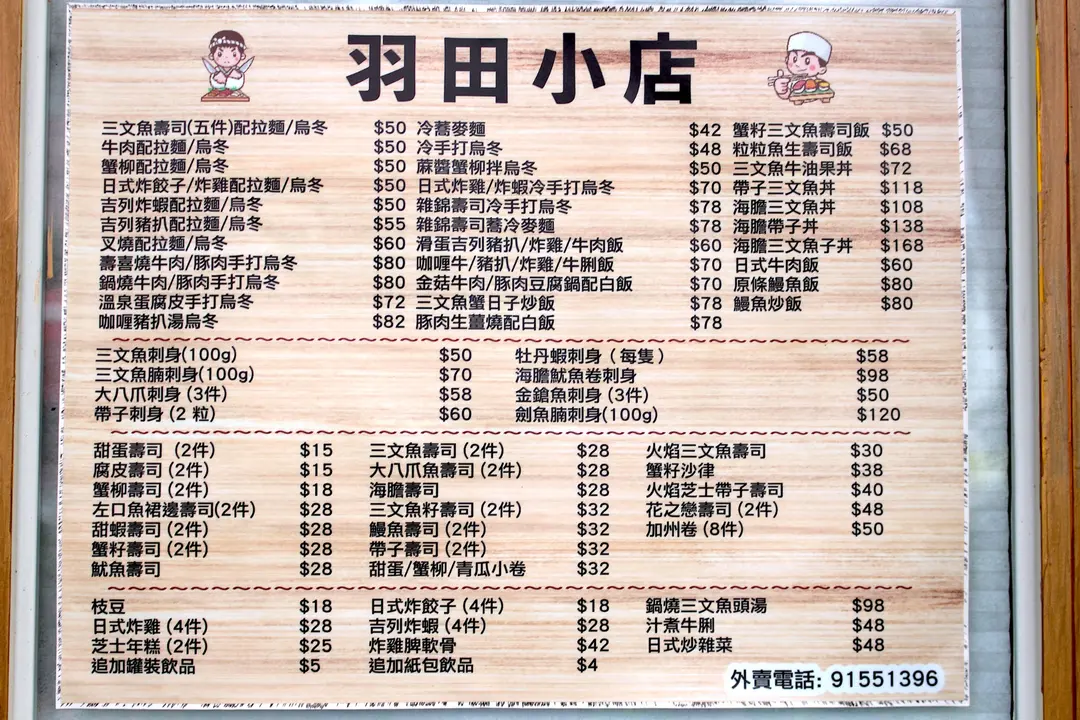 羽田小店
三文魚壽司(五件)配拉麵/烏冬 $50 冷蕎麥麵 $42 蟹籽三文魚壽司飯 $50
牛肉配拉麵/烏冬 $50 冷手打烏冬 $48 粒粒魚生壽司飯 $68
蟹柳配拉麵/烏冬 $50 蔴醬蟹柳拌烏冬 $50 三文魚牛油果丼 $72
日式炸餃子/炸雞配拉麵/烏冬 $50 日式炸雞/炸蝦冷手打烏冬 $70 帶子三文魚丼 $118
吉列炸蝦配拉麵/烏冬 $50 雜錦壽司冷手打烏冬 $78 海膽三文魚丼 $108
吉列豬扒配拉麵/烏冬 $55 雜錦壽司蕎冷麥麵 $78 海膽帶子丼 $138
叉燒配拉麵/烏冬 $60 滑蛋吉列豬扒/炸雞/牛肉飯 $60 海膽三文魚子丼 $168
壽喜燒牛肉/豚肉手打烏冬 $80 咖喱牛/豬扒/炸雞/牛脷飯 $70 日式牛肉飯 $60
鍋燒牛肉/豚肉手打烏冬 $80 金菇牛肉/豚肉豆腐鍋配白飯 $70 原條鰻魚飯 $80
溫泉蛋腐皮手打烏冬 $72 三文魚蟹日子炒飯 $78 鰻魚炒飯 $80
咖喱豬扒湯烏冬 $82 豚肉生薑燒配白飯 $78
三文魚刺身(100g) $50 牡丹蝦刺身 ( 每隻 ) $58
三文魚腩刺身(100g) $70 海膽魷魚卷刺身 $98
大八爪刺身 (3件) $58 金鎗魚刺身 (3件) $50
帶子刺身 (2 粒) $60 劍魚腩刺身(100g) $120
甜蛋壽司 (2件) $15 三文魚壽司 (2件) $28 火焰三文魚壽司 $30
腐皮壽司 (2件) $15 大八爪魚壽司 (2件) $28 蟹籽沙律 $38
蟹柳壽司 (2件) $18 海膽壽司 $28 火焰芝士帶子壽司 $40
左口魚裙邊壽司(2件) $28 三文魚籽壽司 (2件) $32 花之戀壽司 (2件) $48
甜蝦壽司 (2件) $28 鰻魚壽司 (2件) $32 加州卷 (8件) $50
蟹籽壽司 (2件) $28 帶子壽司 (2件) $32
魷魚壽司 $28 甜蛋/蟹柳/青瓜小卷 $32
枝豆 $18 日式炸餃子 (4件) $18 鍋燒三文魚頭湯 $98
日式炸雞 (4件) $28 吉列炸蝦 (4件) $28 汁煮牛脷 $48
芝士年糕 (2件) $25 炸雞脾軟骨 $42 日式炒雜菜 $48
追加罐裝飲品 $5 追加紙包飲品 $4
外賣電話: 91551396